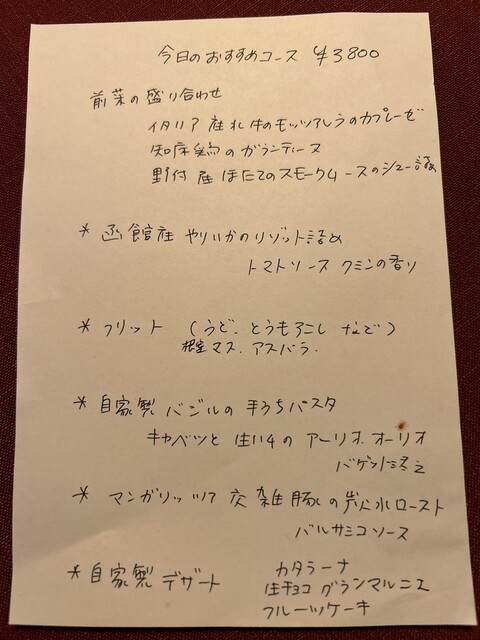 今日のおすすめコース ¥3800
前菜の盛り合わせ
イタリア産水牛のモッツァレラのカプレーゼ
知床鶏のガランティーヌ
野付産ほたてのスモークムースのシュー詰め
* 函館産 やりいかのリゾット詰め
トマトソース クミンの香り
* フリット (うど、とうもろこし など)
根室マス、アスパラ、
* 自家製 バジルの 手うちパスタ
キャベツと 生ハムの アーリオ オーリオ
バゲット添え
* マンガリッツァ 交雑豚の炭火ロースト
バルサミコソース
* 自家製 デザート カタラーナ
生チョコ グランマルニエ
フルーツケーキ